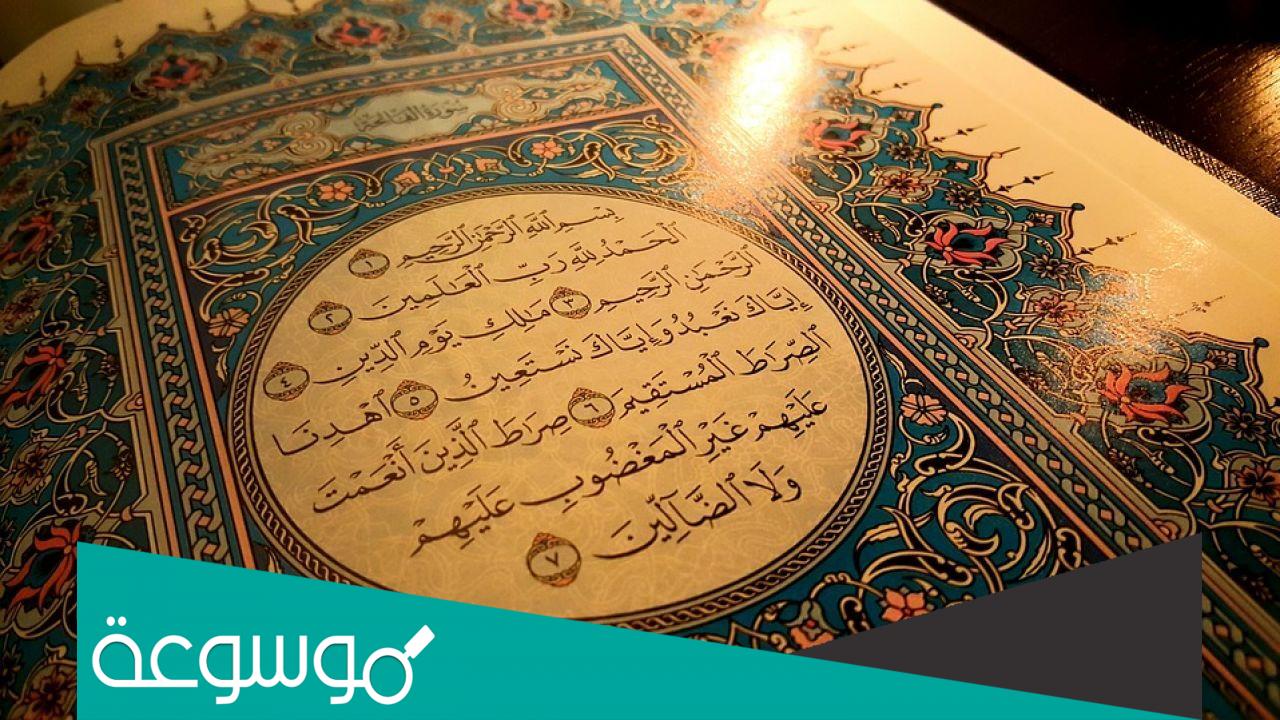 سُورَةُ الفَاتِحَةِ
بِسْمِ ٱللَّهِ ٱلرَّحْمَٰنِ ٱلرَّحِيمِ ١
ٱلْحَمْدُ لِلَّهِ رَبِّ ٱلْعَٰلَمِينَ ٢
ٱلرَّحْمَٰنِ ٱلرَّحِيمِ ٣ مَٰلِكِ يَوْمِ ٱلدِّينِ ٤
إِيَّاكَ نَعْبُدُ وَإِيَّاكَ نَسْتَعِينُ ٥ ٱهْدِنَا
ٱلصِّرَٰطَ ٱلْمُسْتَقِيمَ ٦ صِرَٰطَ ٱلَّذِينَ أَنْعَمْتَ
عَلَيْهِمْ غَيْرِ ٱلْمَغْضُوبِ عَلَيْهِمْ
وَلَا ٱلضَّآلِّينَ ٧
موسوعة